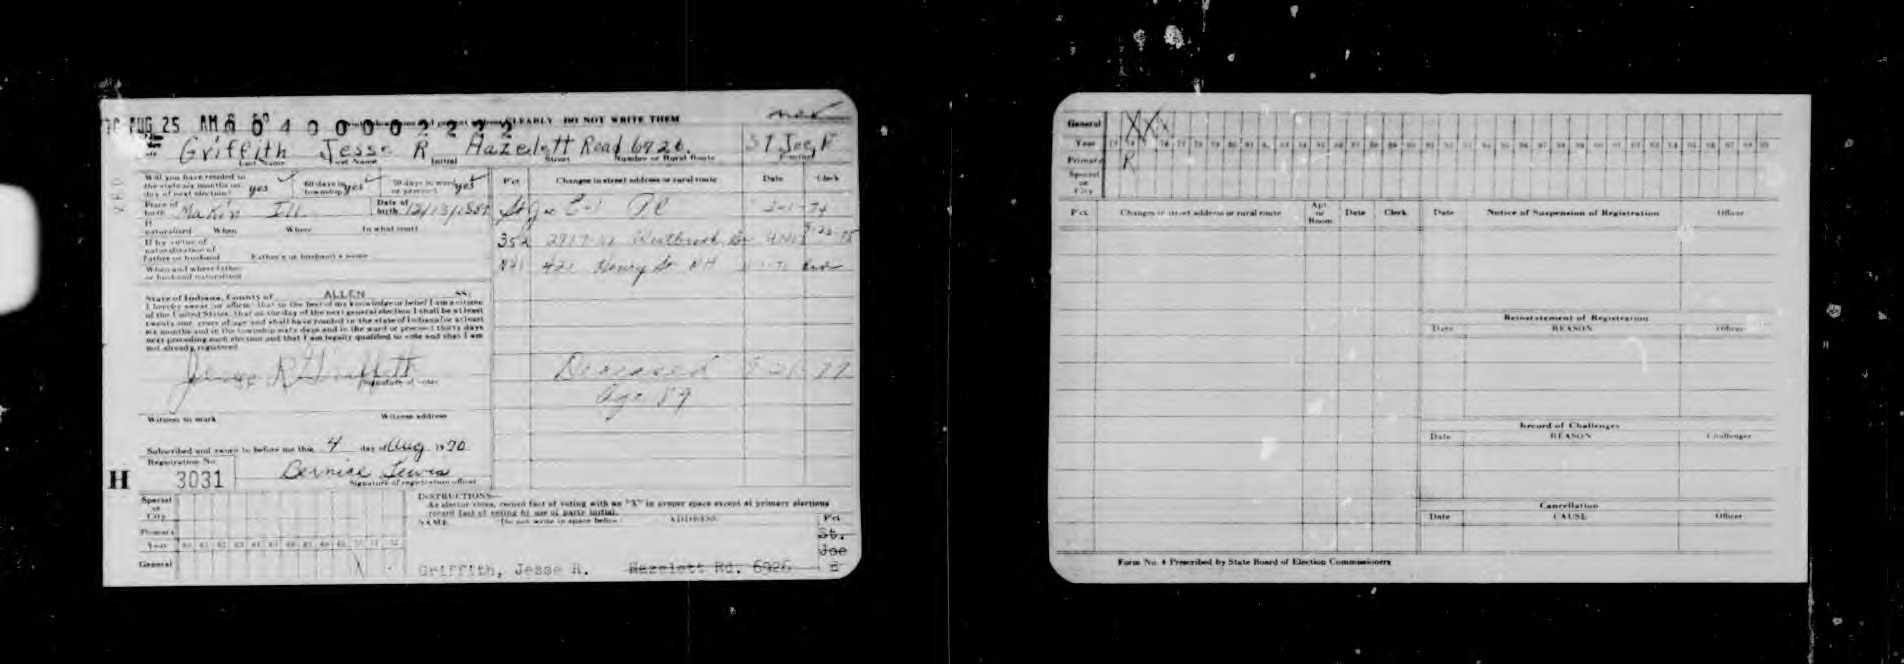 AUG 25 AM 8
0 4 0 0 0 0 2 2 2 2
CLEARLY DO NOT WRITE THEM
Griffith Jesse R Hazelett Road 6926. St Joe, E
Last Name First Name Initial Street Number or Rural Route Precinct
Will you have resided in
the state six months on
day of next election? yes
60 days in
township yes
30 days in ward
or precinct yes
Place of
birth Makin Ill.
Date of
birth
If
naturalized When Where In what court
If by virtue of
naturalization of
Father or husband Father's or husband's name
When and where father
or husband naturalized
State of Indiana, County of ALLEN ss.
I hereby swear (or affirm) that to the best of my knowledge or belief I am a citizen
of the United States, that on the day of the next general election I shall be at least
twenty-one years of age and shall have resided in the state of Indiana for at least
six months and in the township sixty days and in the ward or precinct thirty days
next preceding such election and that I am legally qualified to vote and that I am
not already registered
Jesse R Griffith
Signature of voter
Witness to mark Witness address
Subscribed and sworn to before me this 4 day of Aug 1970
Registration No.
H 3031 Bernice Lewis
Signature of registration officer
Pct Changes in street address or rural route Date Clerk
St Joe E-1
352 2917
421 Henry St NH
Deceased
Age 89
Special
or
City
Primary
Year 60 61 62 63 64 65 66 67 68 69 70 71 72
General
INSTRUCTIONS
As elector votes, record fact of voting with an "X" in proper space except at primary elections
record fact of voting by use of party initial.
NAME (Do not write in space below) ADDRESS Pct
St.
Joe
Griffith, Jesse R. Hazelett Rd. 6926 E
General X X X
Year
Primary R
Special
or
City
Pct Changes in street address or rural route Apt.
or
Room Date Clerk Date Notice of Suspension of Registration Officer
Reinstatement of Registration
Date REASON Officer
Record of Challenges
Date REASON Challenger
Cancellation
Date CAUSE Officer
Form No. 4 Prescribed by State Board of Election Commissioners